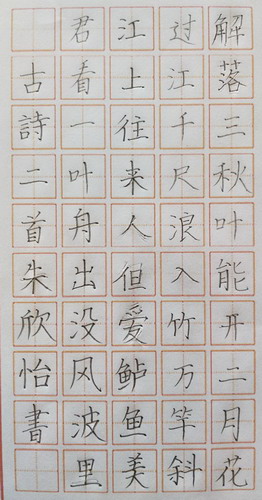 解落三秋叶能开二月花
过江千尺浪入竹万竿斜
江上往来人但爱鲈鱼美
君看一叶舟出没风波里
古詩二首朱欣怡書